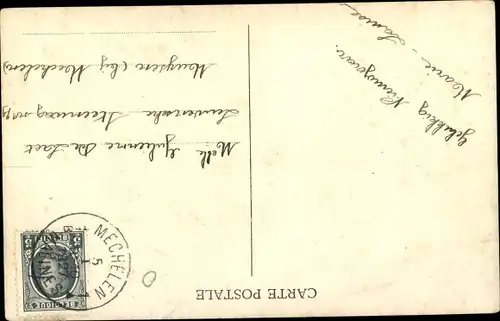 CARTE POSTALE
Gelukkig Nieuwjaar.
Marie - Louise
Melle Julienne De Laet
Leuvensche Steenweg
Muysen (bij Mechelen)
MECHELEN
5
1927
BELGIQUE